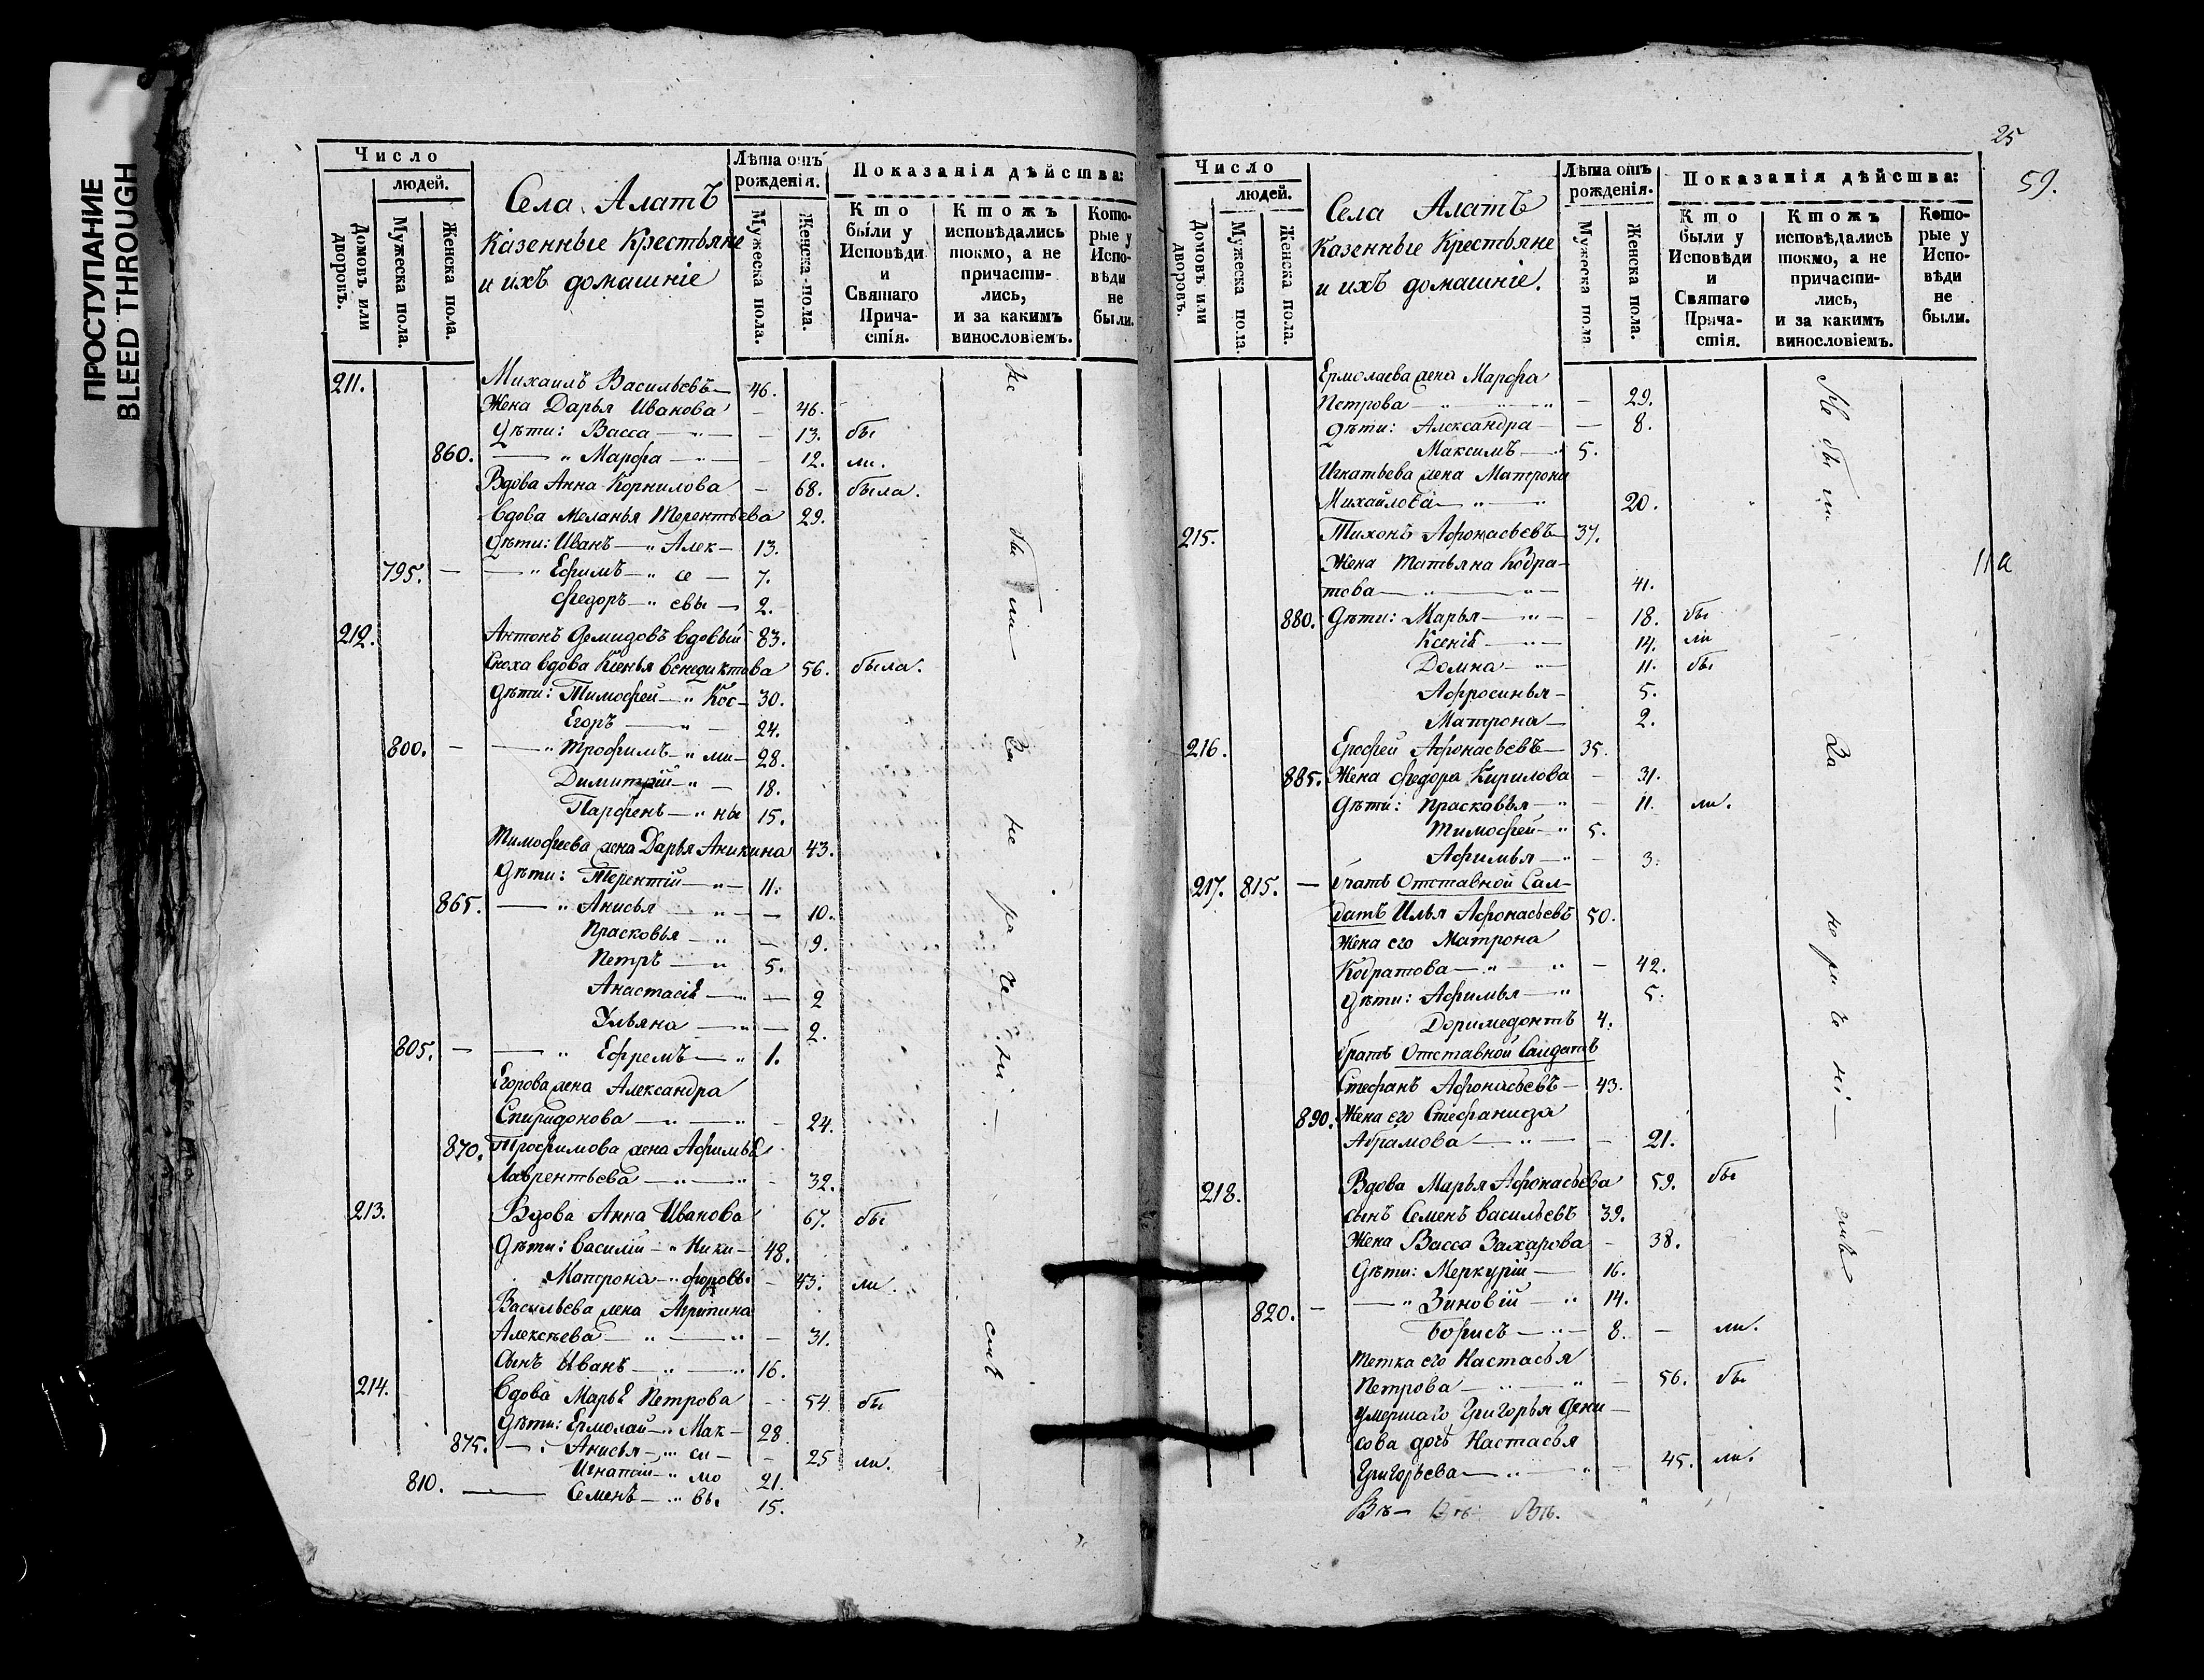 ПРОСТУПАНИЕ
BLEED THROUGH
Число
людей.
Домовъ или дворовъ.
Мужеска пола.
Женска пола.
Села Алатъ
Казенные Крестьяне
и ихъ домашніе
Лѣта отъ рожденія.
Мужеска пола.
Женска пола.
Показанія дѣйства:
Кто были у Исповѣди и Святаго Прича-стія.
Ктожъ исповѣдались токмо, а не причасти-лись, и за какимъ винословіемъ.
Кото-рые у Испо-вѣди не были.
211. Михаилъ Васильевъ — 46.
Жена Дарья Иванова — 46.
Дѣти: Васса — " — 13. бы
860. — " Марфа — " — 12. ли.
Вдова Анна Корнилова — 68. была.
Вдова Меланья Терентьева 29.
Дѣти: Иванъ — " Алек — 13.
795. — " Ефимъ — " се — 7.
Федоръ — " евы — 2.
212. Антонъ Демидовъ вдовый 83.
Сноха вдова Ксенья Венедиктова 56. была.
Дѣти: Тимофей — " Кос — 30.
Егоръ — " — 24.
800. — " Трофимъ — " ми — 28.
Димитрій — " — 18.
Парфенъ — " ны 15.
Тимофеева жена Дарья Аникина 43.
Дѣти: Терентій — " — 11.
865. — " Анисья — " — 10.
Прасковья — " — 9.
Петръ — " 5.
Анастасія — " — 2
Ульяна — " — 2.
805. — " Ефремъ — " 1.
Егорова жена Александра
Спиридонова — " — " — 24.
870. Трофимова жена Афимья
Лаврентьева — " — " — 32.
213. Вдова Анна Иванова 67. бы
Дѣти: Василій — " Ники — 48.
Матрона — " форовы — 43. ли.
Васильева жена Агрипина
Алексѣева — " — " — 31.
Сынъ Иванъ — " — " 16.
214. Вдова Марья Петрова — 54 бы
Дѣти: Ермолай — " Мак — 28
875. — " Анисья — " си — 25 ли.
Игнатій — " мо 21.
810. — Семенъ — " вы 15.
Не бы ли За не ра че ні — емъ
25
59.
Число
людей.
Домовъ или дворовъ.
Мужеска пола.
Женска пола.
Села Алатъ
Казенные Крестьяне
и ихъ домашніе.
Лѣта отъ рожденія.
Мужеска пола
Женска пола.
Показанія дѣйства:
Кто были у Исповѣди и Святаго Прича-стія.
Ктожъ исповѣдались токмо, а не причасти-лись, и за какимъ винословіемъ.
Кото-рые у Испо-вѣди не были.
Ермолаева жена Марфа
Петрова — " — " — 29.
Дѣти: Александра — — 8.
Максимъ — " 5.
Игнатьева жена Матрона
Михайлова — " — " 20.
215. Тихонъ Афонасьевъ — 37.
Жена Татьяна Кодра-
това — " — " — 41.
880. Дѣти: Марья — " — 18. бы
Ксенія — " — 14. ли
Домна — " — 11. бы
Афросинья — 5.
Матрона — 2.
216. Ерофей Афонасьевъ — 35.
885. Жена Федора Кирилова — 31.
Дѣти: Праскавья — " — 11. ли.
Тимофей — " 5.
Афимья — " — 3.
217. 815. — братъ Отставной Сал-
датъ Илья Афонасьевъ 50.
Жена его Матрона
Кодратова — " — " — 42.
Дѣти: Афимья — " 5.
Доримедонтъ 4.
братъ Отставной Салдатъ
Стефанъ Афонасьевъ — 43.
890. Жена его Стефанида
Абрамова — " — — 21.
218. Вдова Марья Афонасьева 59. бы
сынъ Семенъ Васильевъ 39.
Жена Васса Захарова — 38.
Дѣти: Меркурій — 16.
820. — " Зиновій — " 14.
Борисъ — " — 8. — ли.
Тетка его Настасья
Петрова — " — " — 56. бы
Умершаго Григорья Дени-
сова дочь Настасья
Григорьева — " — " — 45. ли.
Не бы ли За не ра че ні — емъ
11а